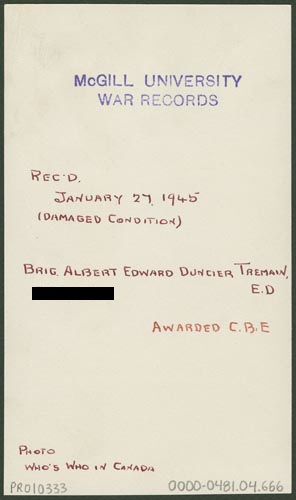 McGILL UNIVERSITY
WAR RECORDS
REC'D.
JANUARY 27, 1945
(DAMAGED CONDITION)
BRIG. ALBERT EDWARD DUNCIER TREMAIN,
E.D
AWARDED C.B.E
PHOTO
WHO'S WHO IN CANADA
PR010333
0000-0481.04.666